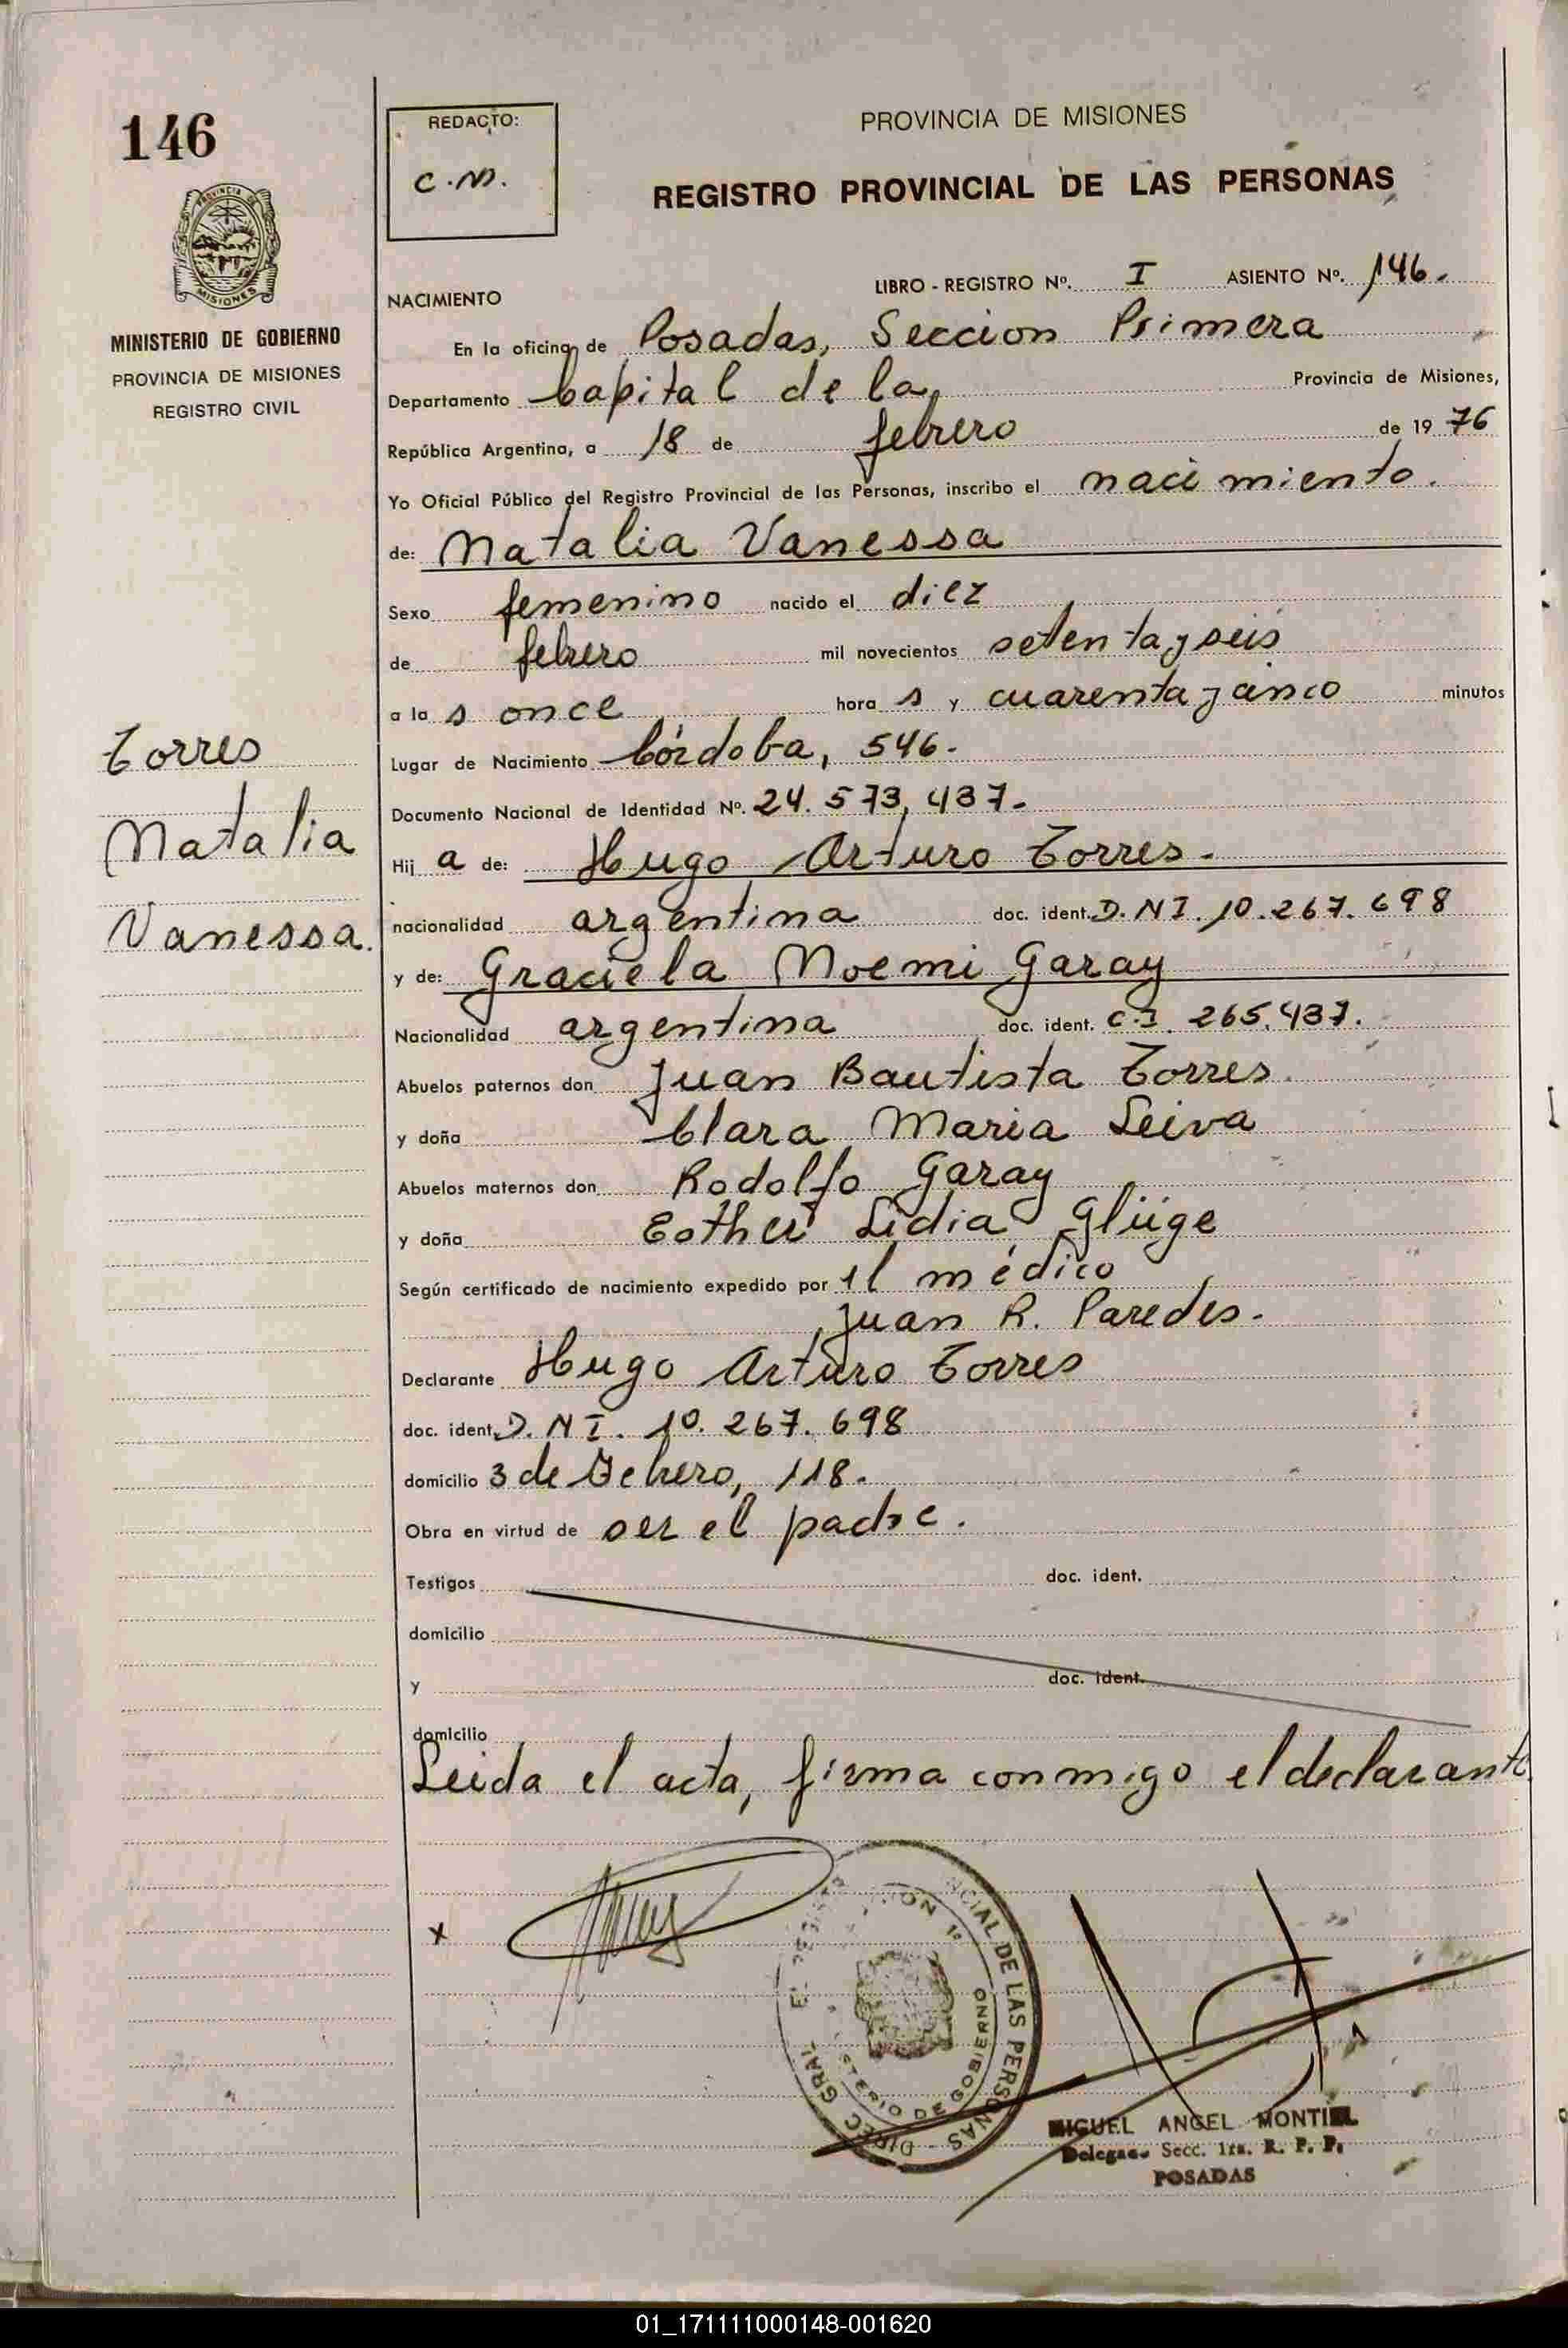 146
PROVINCIA
MISIONES
MINISTERIO DE GOBIERNO
PROVINCIA DE MISIONES
REGISTRO CIVIL
Torres
Natalia
Vanessa.
REDACTO:
C.M.
PROVINCIA DE MISIONES
REGISTRO PROVINCIAL DE LAS PERSONAS
LIBRO - REGISTRO Nº. I ASIENTO Nº. 146.
NACIMIENTO
En la oficina de Posadas, Seccion Primera
Departamento Capital de la, Provincia de Misiones,
República Argentina, a 18 de febrero de 19 76
Yo Oficial Público del Registro Provincial de las Personas, inscribo el nacimiento.
de: Natalia Vanessa
Sexo femenino nacido el diez
de febrero mil novecientos setenta y seis
a la s once hora s y cuarenta y cinco minutos
Lugar de Nacimiento Córdoba, 546.
Documento Nacional de Identidad Nº. 24.573,437.
Hij a de: Hugo Arturo Torres.
nacionalidad argentina doc. ident. D.N I. 10.267.698
y de: Graciela Noemi Garay
Nacionalidad argentina doc. ident. C.I. 265.437.
Abuelos paternos don Juan Bautista Torres.
y doña Clara Maria Leiva
Abuelos maternos don Rodolfo Garay
y doña Esther Lidia Glüge
Según certificado de nacimiento expedido por el médico
Juan R. Paredes.
Declarante Hugo Arturo Torres
doc. ident. D. N I. 10.267.698
domicilio 3 de Febrero, 118.
Obra en virtud de ser el padre.
Testigos doc. ident.
domicilio
y doc. ident.
domicilio
Leida el acta, firma conmigo el declarante
x
DIREC GRAL NCIAL DE LAS PERSONAS
STERIO DE GOBIERNO
MIGUEL ANGEL MONTIEL
Delegado Secc. 1ra. R. P. P.
POSADAS
01_171111000148-001620